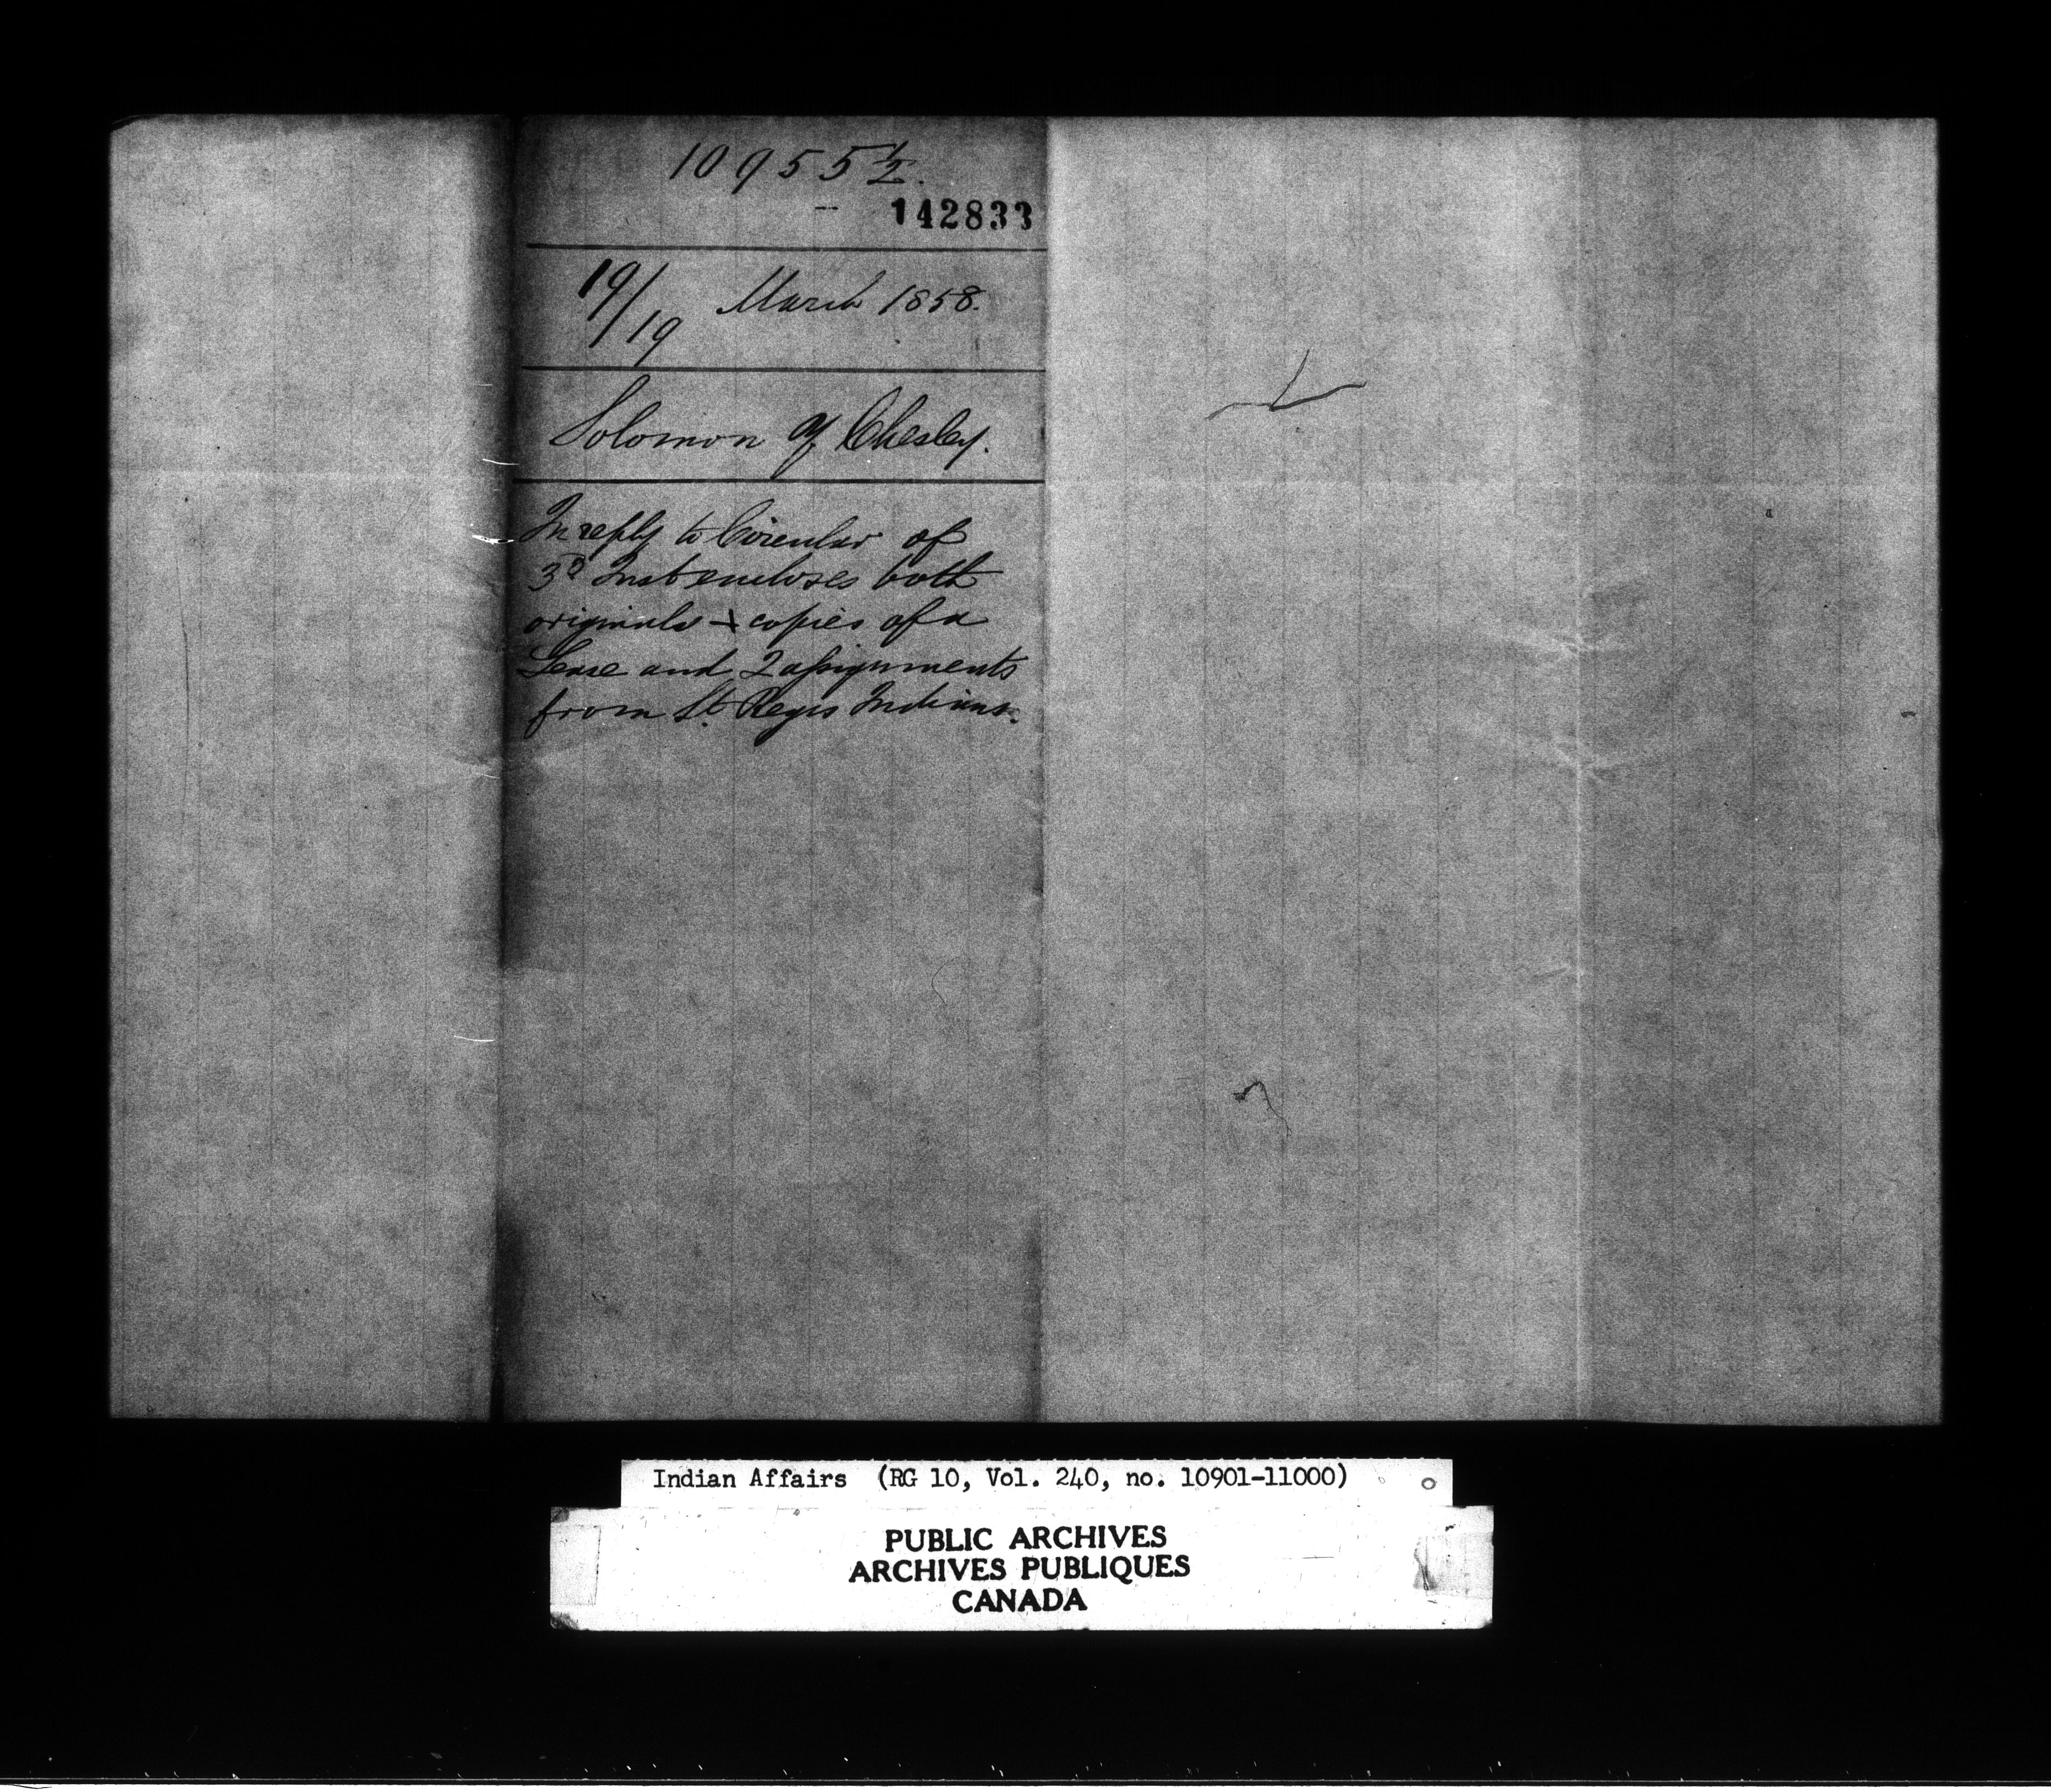 10955 1/2.
142833
19/19 March 1858.
Solomon Y Chesley.
In reply to Circular of
3D Inst encloses both
originals + copies of a
Lease and 2 assignments
from St. Regis Indians.
Indian Affairs (RG 10, Vol. 240, no. 10901-11000)
PUBLIC ARCHIVES
ARCHIVES PUBLIQUES
CANADA